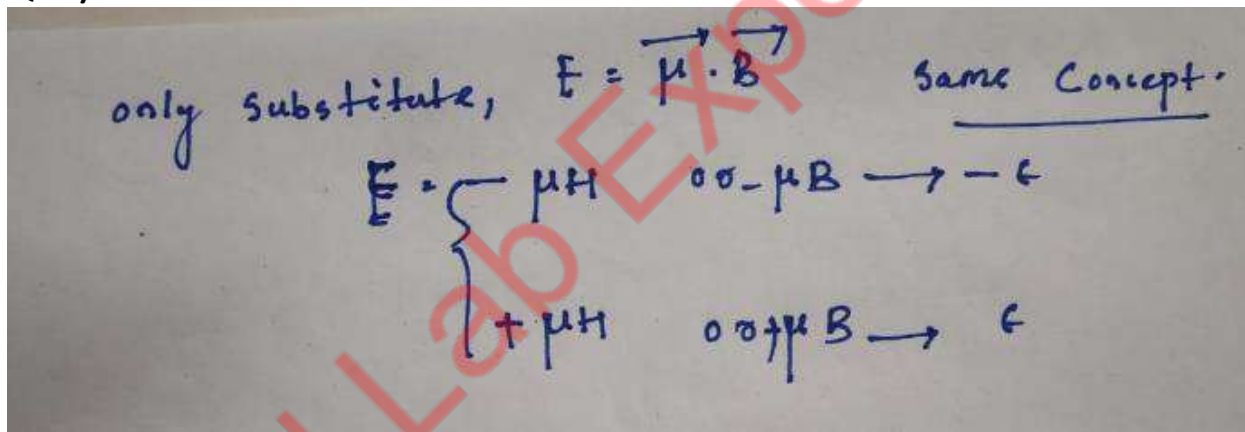 only substitute, E = μ⃗ . B⃗ Same Concept.
E = { - μH or - μB → - ε
+ μH or + μB → ε
Lab Exp